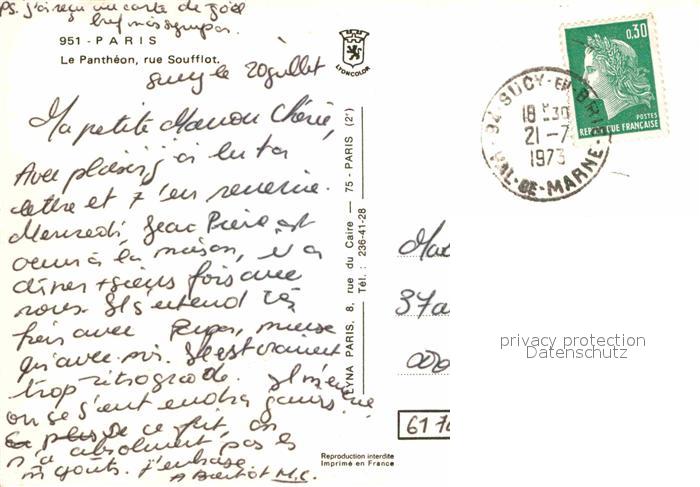 PS. j'ai reçu une carte de Joël
951 - PARIS
Le Panthéon, rue Soufflot.
LYONCOLOR
Sucy le 20 juillet
Ma petite Manon Chérie,
Avec plaisir j'ai lu ta
lettre et t'en remercie.
Mercredi, Jean Pierre est
venu à la maison, il a
dîner plusieurs fois avec
nous. Ils entend très
bien avec Papa, mieux
qu'avec moi. Il est vraiment
trop rétrograde. Il
on se s'entendra jamais.
En plus de ce fait, on
n'a absolument pas les
m goûts. J'embrasse
A Bientôt M.C.
LYNA PARIS, 8, rue du Caire — 75 - PARIS (2°)
Tél. : 236-41-28
Reproduction interdite
Imprimé en France
0,30
POSTES
REPUBLIQUE FRANÇAISE
94 SUCY-EN-BRIE
18 H30
21-7
1973
VAL-DE-MARNE
37
61 70
privacy protection
Datenschutz